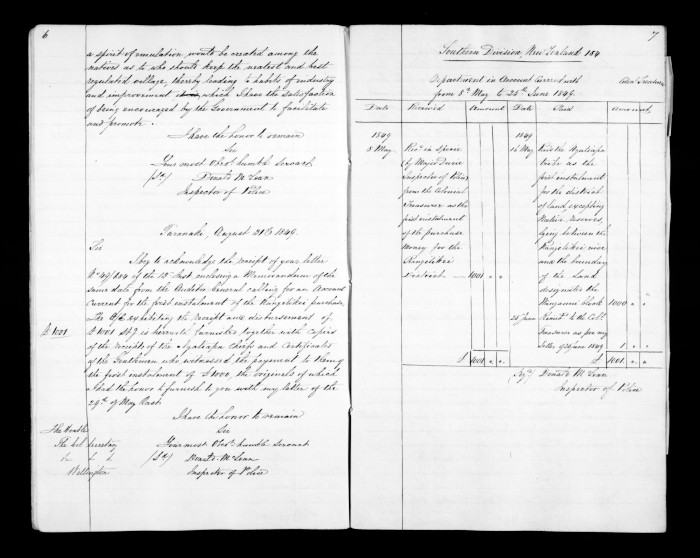 6
a spirit of emulation, would be created among the
natives as to who should keep the neatest and best
regulated village, thereby leading to habits of industry
and improvement which I have the satisfaction
of being encouraged by the Government to facilitate
and promote.
I have the honor to remain
Sir
Your most Obdt. humble Servant
Donald McLean
Inspector of Police
Taranaki, August 21st 1849.
Sir
I beg to acknowledge the receipt of your letter
No 49/804 of the 12th Inst. enclosing a Memorandum of the
same date from the Auditor General calling for an Account
Current for the first instalment of the Rangitikei purchase.
The A/c exhibiting the receipt and disbursement of
£1001
£1001 Stg is herewith furnished together with Copies
of the receipts of the Ngatiapa Chiefs and Certificates
of the Gentlemen who witnessed the payment to them of
the first instalment of £1000, the originals of which
I had the honor to furnish to you with my letter of the
29th of May last.
I have the honor to remain
Sir
Your most Obdt. humble Servant
Donald McLean
Inspector of Police
The Honble
The Col Secretary
&c &c &c
Wellington
7
Southern Division, New Zealand 184
Department in Account Current with
from 8th May to 25th June 1849.
Date Received Amount Date Paid Amount
1849 1849
8 May Recd in specie
(by Major Durie
Inspector of Police)
from the Colonial
Treasurer as the
first instalment
of the purchase
Money for the
Rangitikei
District 1001 " "
16 May Paid the Ngatiapa
tribe as the
first instalment
for the district
of land, excepting
Native Reserves,
lying between the
Rangitikei river
and the boundary
of the land
designated the
Wanganui block 1000 " "
25 June Remitd to the Coll
Treasurer as per my
letter of 25 June 1849 1 " "
£ 1001 " " £ 1001 " "
Donald McLean
Inspector of Police